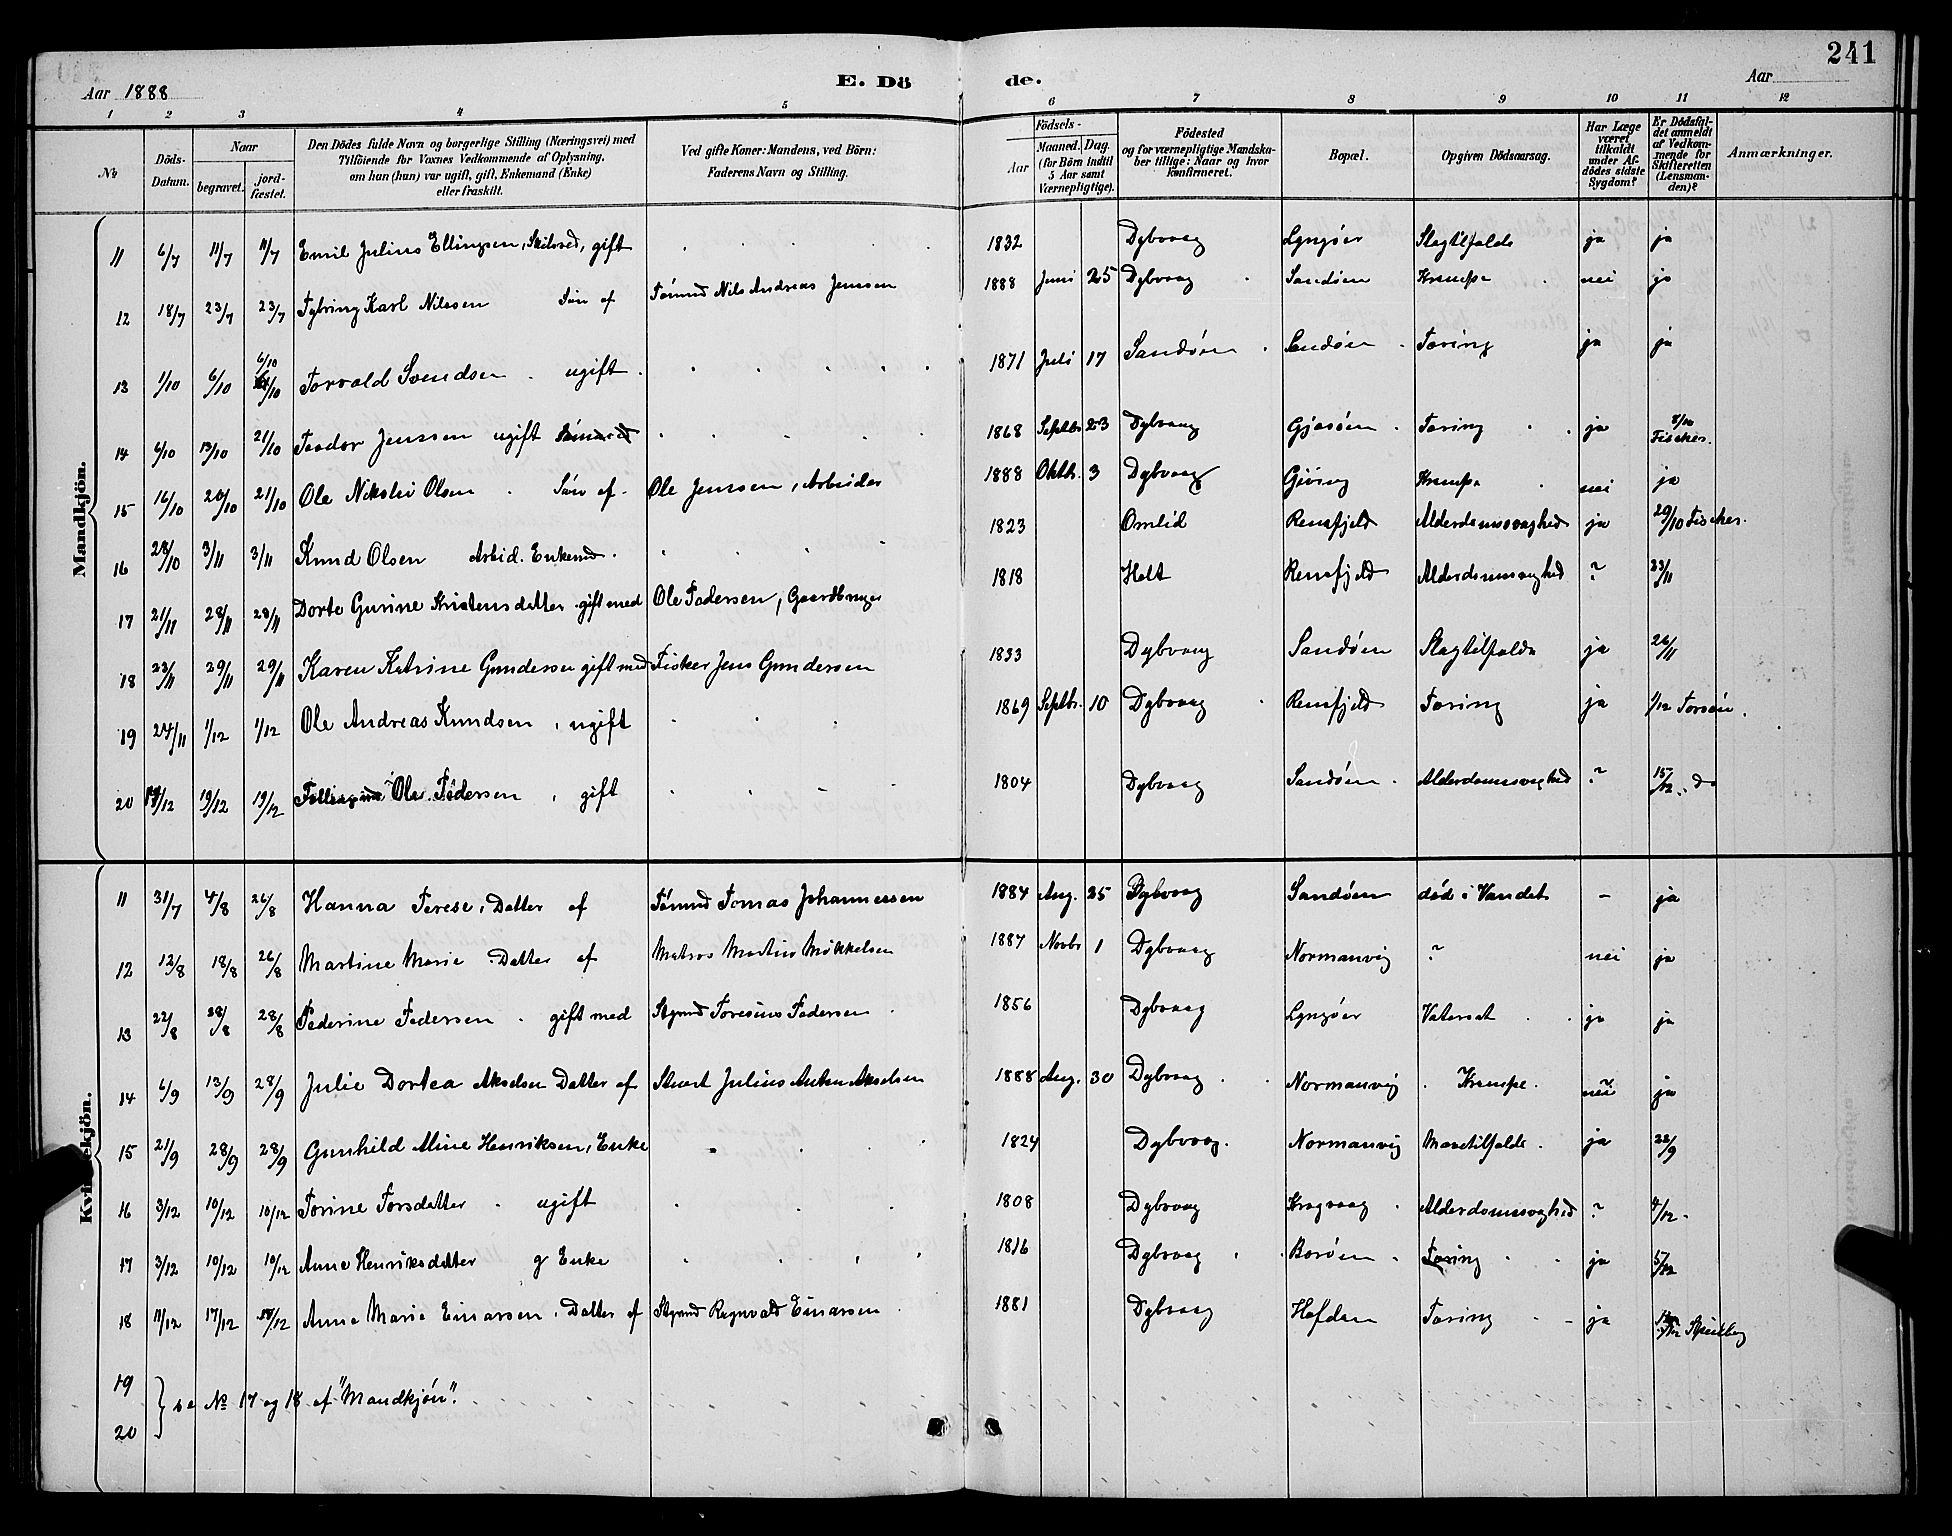 241
Aar 1888 E. Dö de. Aar
1 2 3 4 5 6 7 8 9 10 11 12
No Döds-Datum. Naar begravet. jord-fæstet. Den Dödes fulde Navn og borgerlige Stilling (Næringsvei) med Tilföiende for Voxnes Vedkommende af Oplysning, om han (hun) var ugift, gift, Enkemand (Enke) eller fraskilt. Ved gifte Koner: Mandens, ved Börn: Faderens Navn og Stilling. Födsels- Aar Maaned. Dag. (for Börn indtil 5 Aar samt Værnepligtige). Födested og for værnepligtige Mandskaber tillige: Naar og hvor konfirmeret. Bopæl. Opgiven Dödsaarsag. Har Læge været tilkaldt under Afdödes sidste Sygdom? Er Dödsfaldet anmeldt af Vedkommende for Skifteretten (Lensmanden)? Anmærkninger.
Mandkjön.
11 6/7 11/7 11/7 Emil Julius Ellingsen, gift 1832 Dybvaag Lyngöer Slagtilfælde ja ja
12 18/7 23/7 23/7 Karl Nilssen Sön af Tömmd Nils Andreas Jenssen 1888 Juni 25 Dybvaag Sandöen Krampe nei ja
13 1/10 6/10 6/10 Torvald Svendsen ugift 1871 Juli 17 Sandöen Sandöen Tæring ja ja
14 6/10 13/10 21/10 Teodor Jenssen ugift Sömand 1868 Septbr 23 Dybvaag Gjesöen Tæring ja 8/10 Fischer.
15 16/10 20/10 21/10 Ole Nikolai Olsen Sön af Ole Jenssen, Arbeider 1888 Oktbr. 3 Dybvaag Gjeving Krampe nei ja
16 28/10 3/11 3/11 Knud Olsen Arbid. Enkemd 1823 Omlid Rensfjeld Alderdomssvaghed ja 29/10 Fischer.
17 21/11 28/11 28/11 Dorte Gurine Kristensdatter gift med Ole Pedersen, Gaardbruger 1818 Holt Rensfjeld Alderdomssvaghed ? 23/11
18 23/11 29/11 29/11 Karen Katrine Gundersen gift med Fisker Jens Gundersen 1833 Dybvaag Sandöen Slagtilfælde ja 26/11
19 24/11 1/12 1/12 Ole Andreas Knudsen, ugift 1869 Septbr. 10 Dybvaag Rensfjeld Tæring ja 1/12
20 14/12 19/12 19/12 Ole Pedersen, gift 1804 Dybvaag Sandöen Alderdomssvaghed ? 15/12 do
Kvindekjön.
11 31/7 4/8 26/8 Hanna Terese, Datter af Tömmd Tomas Johannessen 1884 Aug. 25 Dybvaag Sandöen död i Vandet - ja
12 12/8 18/8 26/8 Martine Marie Datter af Matros Martin Mikkelsen 1887 Novbr 1 Dybvaag Normanvig ? nei ja
13 22/8 28/8 28/8 Pederine Pedersen gift med Styrmd Toresius Pedersen 1856 Dybvaag Lyngöer Vatersot ja ja
14 6/9 13/9 28/9 Julie Dortea Akselsen Datter af Stuert Julius Anton Akselsen 1888 Aug. 30 Dybvaag Normanvig Krampe. nei ja
15 21/9 28/9 28/9 Gunhild Mine Henriksen, Enke 1824 Dybvaag. Normanvig Mavetilfælde. ja 22/9
16 3/12 10/12 10/12 Torine Torsdatter ugift 1808 Dybvaag Krogvaag Alderdomssvaghed ? 4/12
17 3/12 10/12 10/12 Anne Henriksdatter g Enke 1816 Dybvaag Borøen Tæring ja 5/12
18 11/12 17/12 18/12 Anne Marie Einarsen, Datter af Styrmd Ragnvald Einarsen 1881 Dybvaag Hofdan Tæring ja
19
20 } se No 17 og 18 af "Mandkjön".